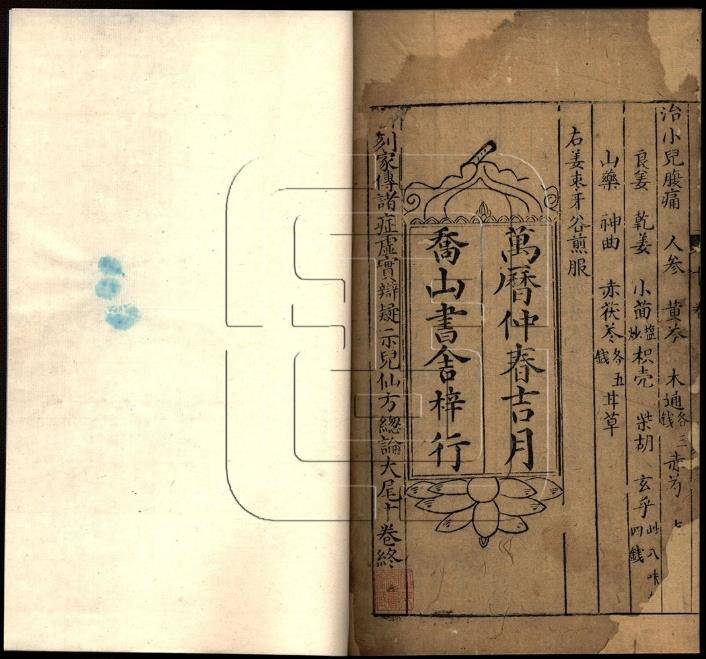 治小兒腹痛 人参 黄芩 木通各三錢 赤芍
良姜 乾姜 小茴盐炒 枳壳 柴胡 玄乎四錢 此八味
山藥 神曲 赤茯苓各五錢 甘草
右姜枣牙谷煎服
萬曆仲春吉月
喬山書舍梓行
刻家傳諸症虛實辯疑示兒仙方總論大尾十卷終